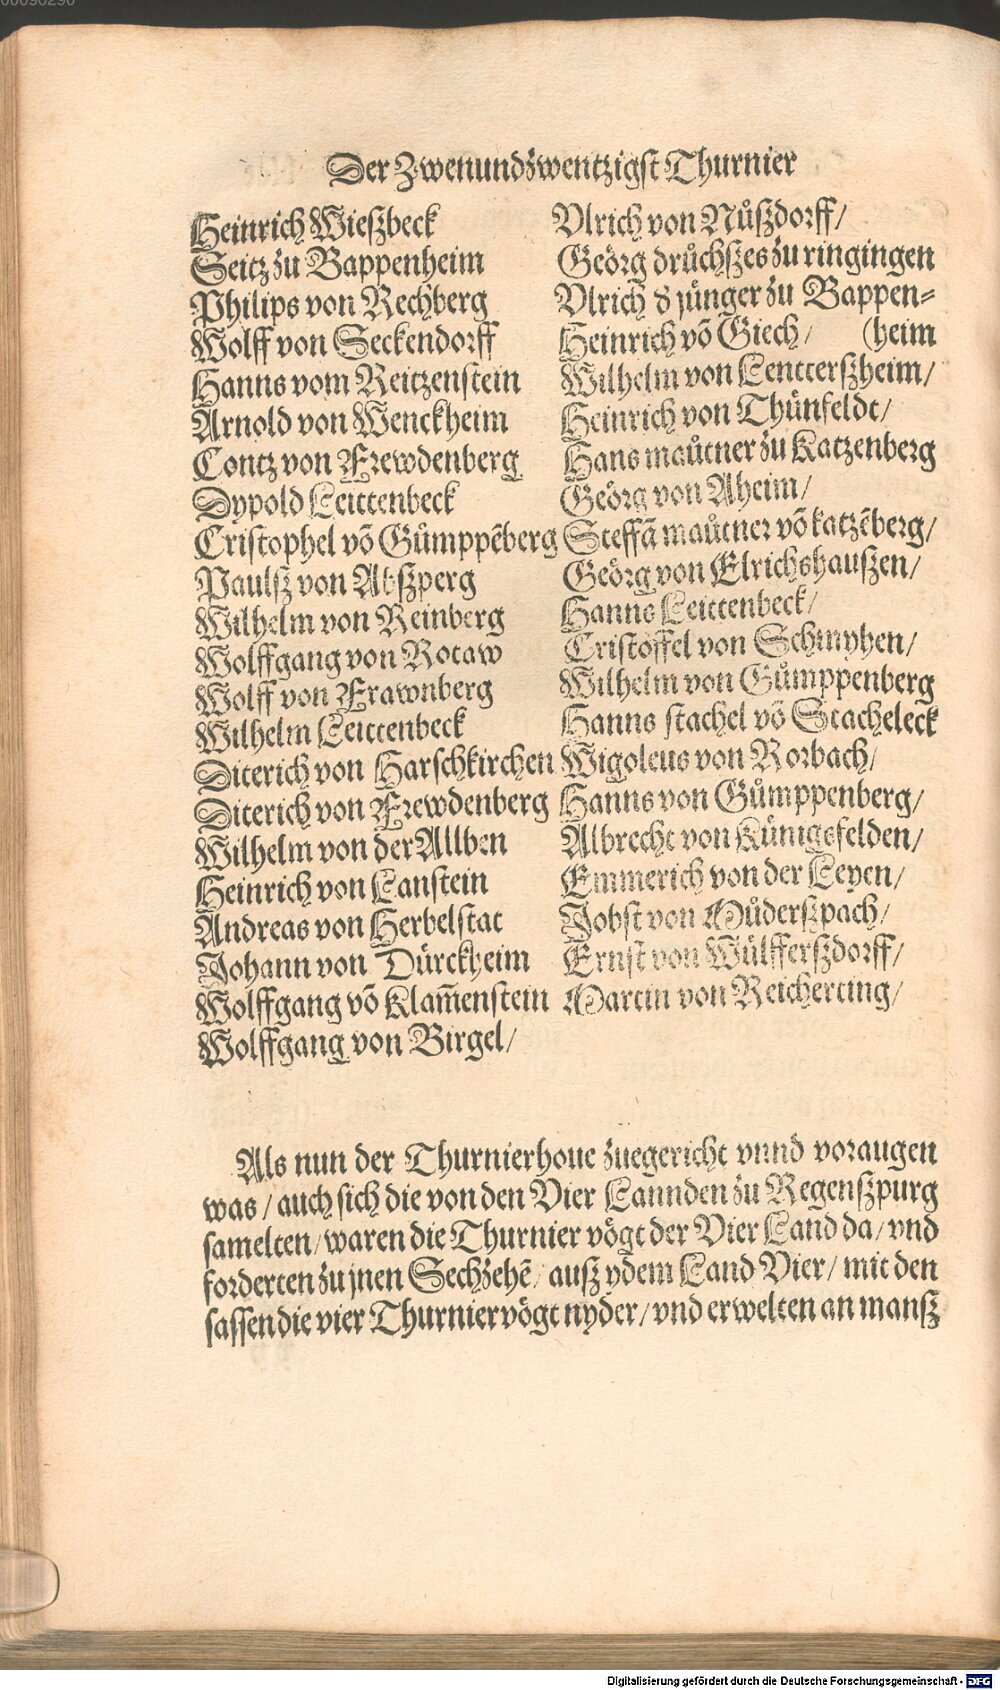 Der Zwenundzwentzigst Thurnier
Heinrich Wießbeck
Seitz zu Bappenheim
Philips von Rechberg
Wolff von Seckendorff
Hanns vom Reitzenstein
Arnold von Wenckheim
Contz von Frewdenberg
Dypold Leittenbeck
Cristophel võ Gůmppẽberg
Paulß von Abßperg
Wilhelm von Reinberg
Wolffgang von Rotaw
Wolff von Frawnberg
Wilhelm Leittenbeck
Diterich von Harschkirchen
Diterich von Frewdenberg
Wilhelm von der Allben
Heinrich von Lanstein
Andreas von Herbelstat
Johann von Dürckheim
Wolffgang võ Klam̃enstein
Wolffgang von Birgel/
Vlrich von Nůßdorff/
Geörg drůchßes zu ringingen
Vlrich d jünger zu Bappen=
Heinrich võ Giech/ (heim
Wilhelm von Lentterßheim/
Heinrich von Thünfeldt/
Hans maůtner zu Katzenberg
Geörg von Aheim/
Steffã maůtner võ katzẽberg/
Geörg von Elrichshaußen/
Hanns Leittenbeck/
Cristoffel von Schmyhen/
Wilhelm von Gůmppenberg
Hanns stachel võ Stacheleck
Wigoleus von Rorbach/
Hanns von Gůmppenberg/
Albrecht von Künigsfelden/
Emmerich von der Leyen/
Jobst von Můderßpach/
Ernst von Wülfferßdorff/
Martin von Reicherting/
Als nun der Thurnierhoue zuegericht vnnd voraugen
was/ auch sich die von den Vier Lannden zu Regenßpurg
samelten/ waren die Thurnier vögt der Vier Land da/ vnd
forderten zu jnen Sechzehẽ/ auß ydem Land Vier/ mit den
sassen die vier Thurniervögt nyder/ vnd erwelten an manß
Digitalisierung gefördert durch die Deutsche Forschungsgemeinschaft - DFG